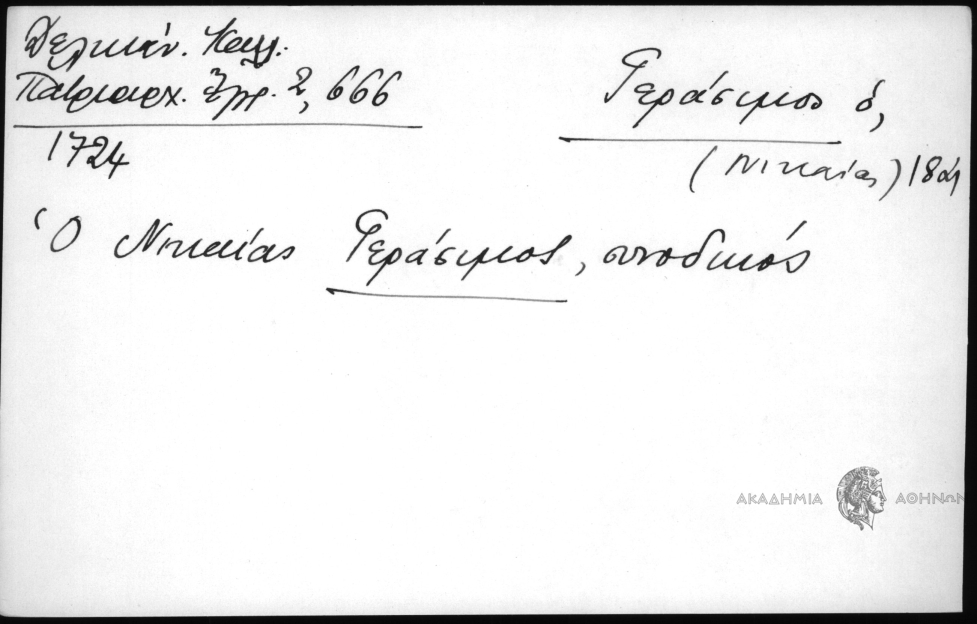 Δελικάν. Καλλ.
Πατριαρχ. Ἔγγρ. 2, 666
1724
Γεράσιμος ὁ,
(Νικαίας) 18 αἰ
Ὁ Νικαίας Γεράσιμος, συνοδικός
ΑΚΑΔΗΜΙΑ ΑΘΗΝΩΝ